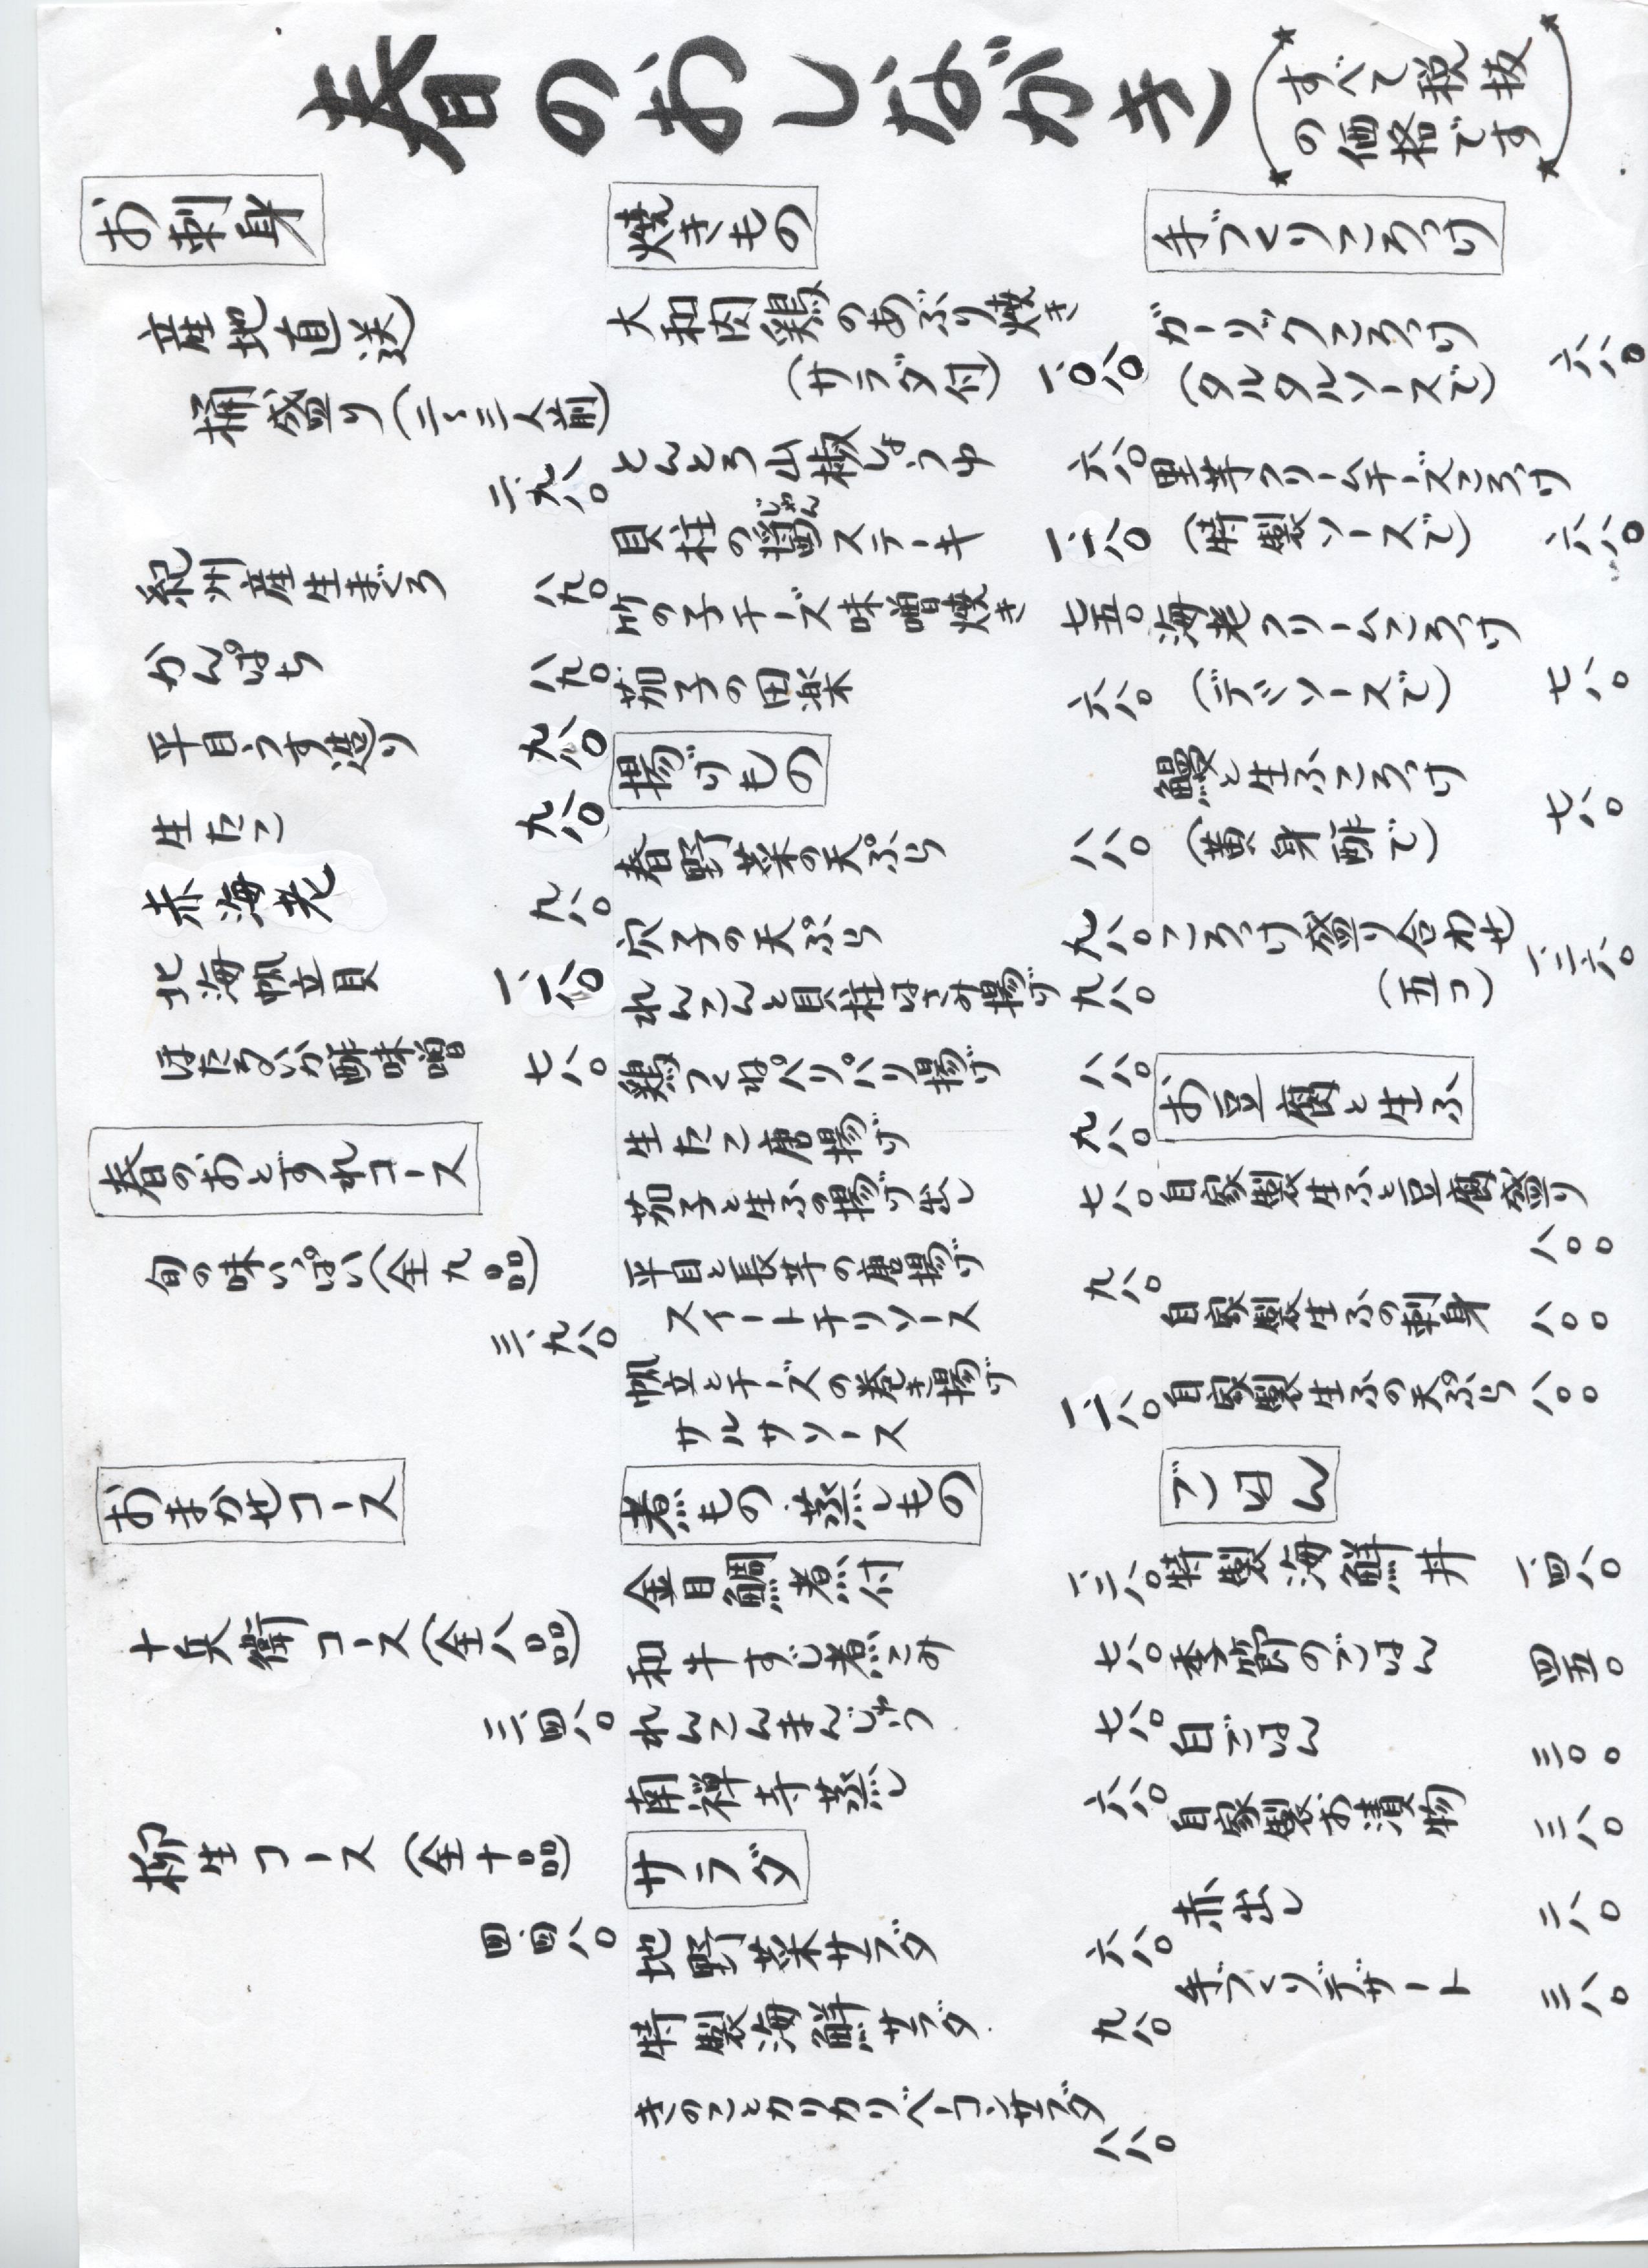 春のおしながき
すべて税抜
の価格です
お刺身
産地直送
桶盛り(二～三人前)
二、九八〇
紀州産生まぐろ 八九〇
かんぱち 八九〇
平目うす造り 九八〇
生たこ 九八〇
赤海老 九八〇
北海帆立貝 一、一八〇
ほたるいか酢味噌 七八〇
春のおとずれコース
旬の味いっぱい(全九品)
三、九八〇
おまかせコース
十兵衛コース(全八品)
三、四八〇
柳生コース(全十品)
四、四八〇
焼きもの
大和肉鶏のあぶり焼き
(サラダ付) 一、〇八〇
とんとろ山椒しょうゆ 六八〇
貝柱の醤じゃんステーキ 一、一八〇
竹の子チーズ味噌焼き 七五〇
茄子の田楽 六八〇
揚げもの
春野菜の天ぷら 八八〇
穴子の天ぷら 九八〇
れんこんと貝柱はさみ揚げ 九八〇
鶏つくねパリパリ揚げ 八八〇
生たこ唐揚げ 九八〇
茄子と生ふの揚げ出し 七八〇
平目と長芋の唐揚げ 九八〇
スイートチリソース
帆立とチーズの巻き揚げ 一、一八〇
サルサソース
煮もの 蒸しもの
金目鯛煮付 一、三八〇
和牛すじ煮こみ 七八〇
れんこんまんじゅう 七八〇
南禅寺蒸し 六八〇
サラダ
地野菜サラダ 六八〇
特製海鮮サラダ 九八〇
きのことカリカリベーコンサラダ
八八〇
手づくりころっけ
ガーリックころっけ 六八〇
(タルタルソースで)
里芋クリームチーズころっけ
(特製ソースで) 六八〇
海老クリームころっけ
(デミソースで) 七八〇
鰻と生ふころっけ 七八〇
(黄身酢で)
ころっけ盛り合わせ 一、三六〇
(五コ)
お豆腐と生ふ
自家製生ふと豆腐盛り
八〇〇
自家製生ふの刺身 八〇〇
自家製生ふの天ぷら 八〇〇
ごはん
特製海鮮丼 一、四八〇
季節のごはん 四五〇
白ごはん 三〇〇
自家製お漬物 三八〇
赤出し 二八〇
手づくりデザート 三八〇